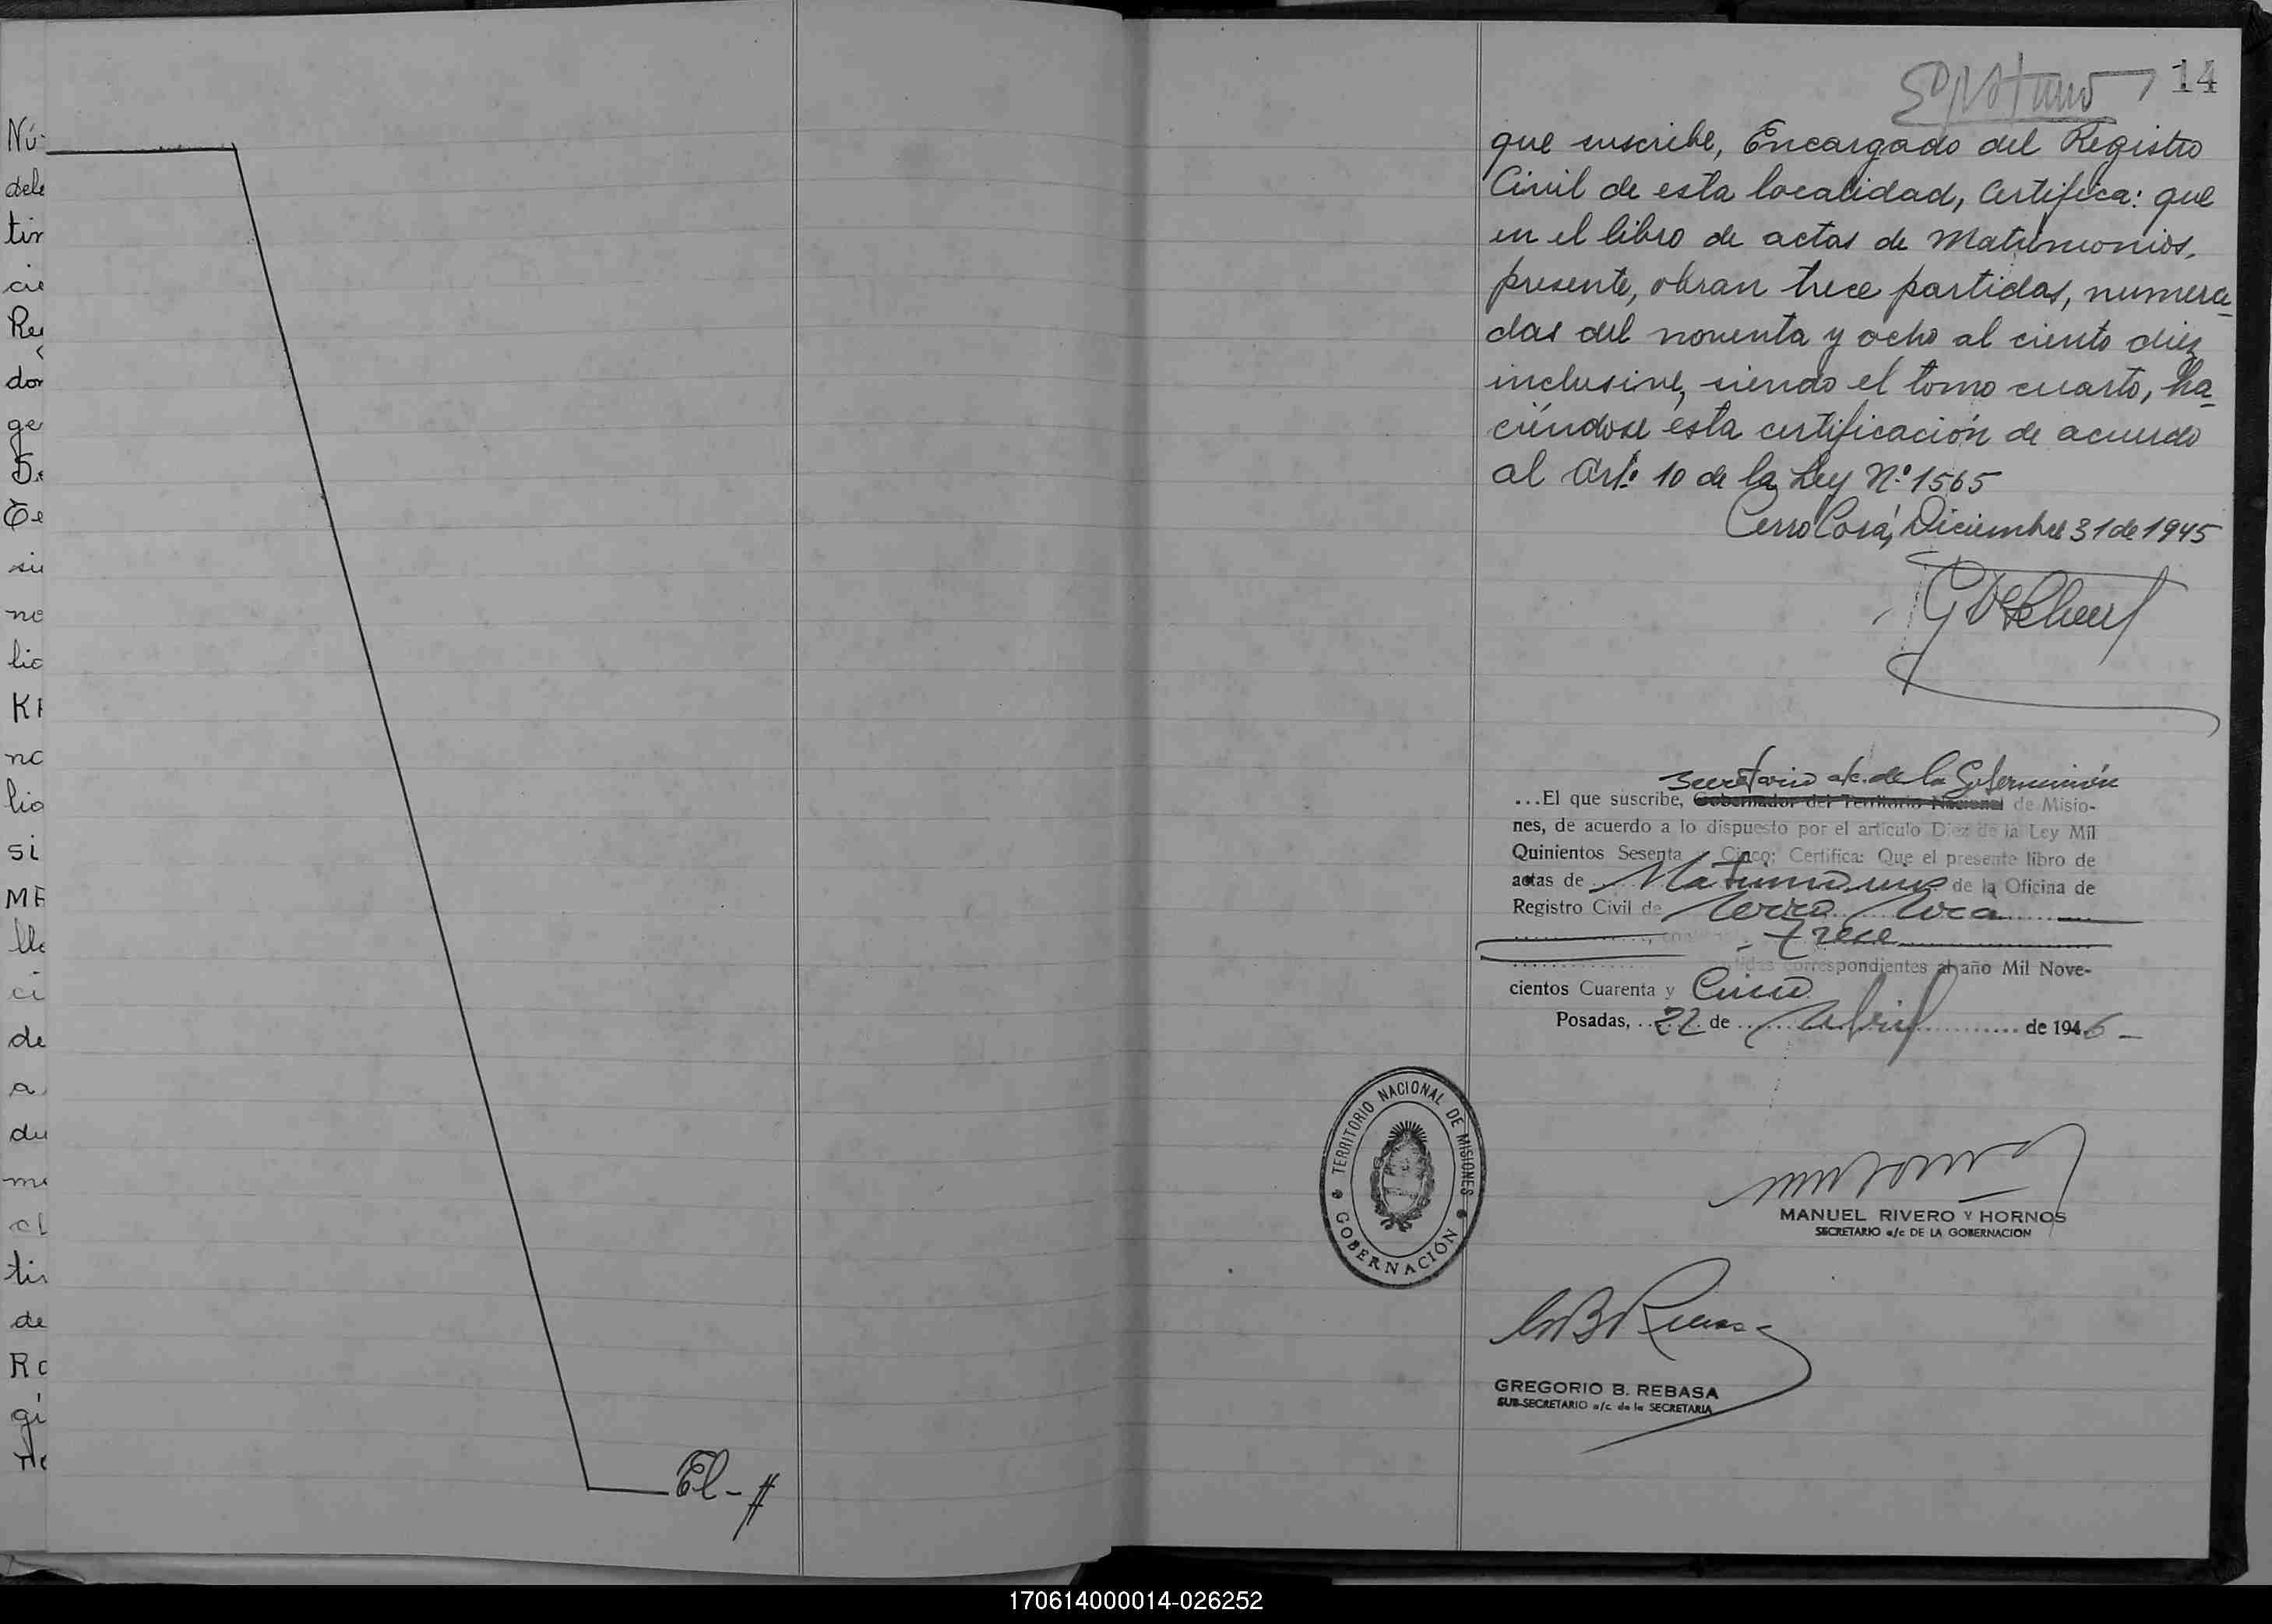 Nú-
dele
tin
cie
Re
don
ge
De
Ce
sie
no
lic
KI
no
lio
si
ME
lle
ci
de
a
du
me
cl
tin
de
Ro
gi
ne
El-//
14
que suscribe, Encargado del Registro
Civil de esta localidad, Certifica: que
en el libro de actas de Matrimonios,
presente, obran trece partidas, numera-
das del noventa y ocho al ciento diez
inclusive, siendo el tomo cuarto, ha-
ciéndose esta certificación de acuerdo
al Art.º 10 de la Ley N.º 1565
Cerro Corá, Diciembre 31 de 1945
Secretario a/c. de la Gobernación
...El que suscribe, Gobernador del Territorio Nacional de Misio-
nes, de acuerdo a lo dispuesto por el artículo Diez de la Ley Mil
Quinientos Sesenta y Cinco; Certifica: Que el presente libro de
actas de Matrimonios de la Oficina de
Registro Civil de Cerro Corá
trece
partidas correspondientes al año Mil Nove-
cientos Cuarenta y Cinco
Posadas, 22 de Abril de 1946-
TERRITORIO NACIONAL DE MISIONES
GOBERNACIÓN
MANUEL RIVERO Y HORNOS
SECRETARIO a/c DE LA GOBERNACION
GREGORIO B. REBASA
SUB-SECRETARIO a/c de la SECRETARIA
170614000014-026252